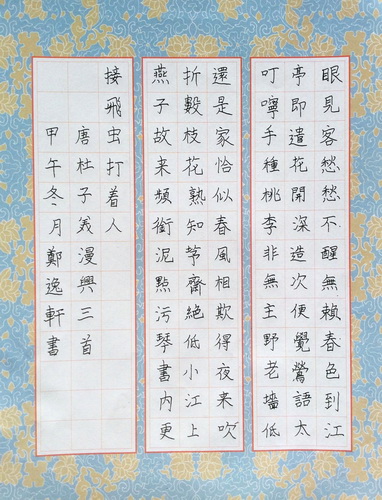 眼見客愁愁不醒無賴春色到江
亭即遣花開深造次便覺鶯語太
叮嚀手種桃李非無主野老墻低
還是家恰似春風相欺得夜来吹
折數枝花熟知茅齋絕低小江上
燕子故来頻銜泥點污琴書内更
接飛虫打着人
唐杜子美漫興三首
甲午冬月鄭逸軒書